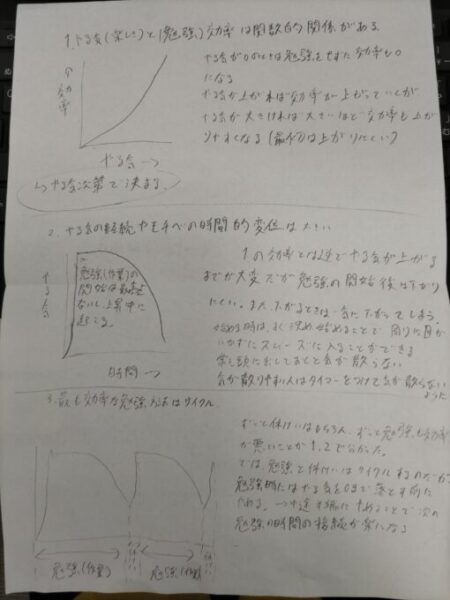 1. やる気(楽しさ)と(勉強)効率は関数的関係がある
↑効率
やる気が0のときは勉強をせず効率も0
になる
やる気が上がれば効率が上がっていくが
やる気が大きければ大きいほど効率も上が
りやすくなる(最初は上がりにくい)
やる気→
↳やる気次第で決まる
2. やる気の持続やモチベの時間的変位は大きい
やる気
勉強(作業)の
開始は最高で
ないし上昇中に
起こる。
時間→
1の効率とは逆でやる気が上がる
までが大変だが勉強の開始後は下がり
にくい。また下がるときは急に下がってしまう。
始める時は、よく決め始めることで周りに目が
いかずにスムーズに入ることができる
常に頭に出しておくと気が散らない
気が散りやすい人はタイマーをつけて気が散らない
ように
3. 最も効率な勉強方法はサイクル
ずっと休けいはもちろん、ずっと勉強も効率
が悪いことが1,2で分かった。
では、勉強と休けいはサイクルするのだが
勉強時にはやる気を0まで落とす前に
やめる。→中途半端にやめることで次の
勉強の時間の接続が楽になる
勉強(作業)
休けい
勉強(作業)
休けい